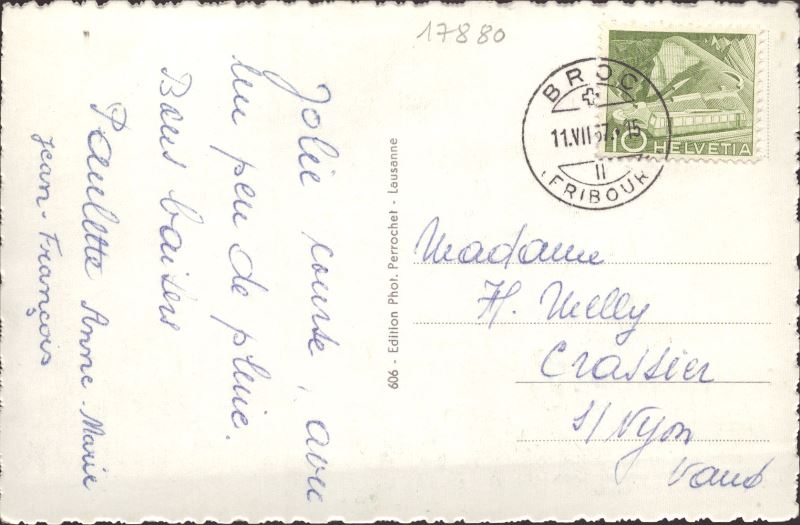 17880
BROC
11.VII 57
II
(FRIBOUR
10 HELVETIA
Jolie course, avec
un peu de pluie.
Bons baisers
Paulette Anne-Marie
Jean-François
606 - Edition Phot. Perrochet - Lausanne
Madame
H. Melly
Crassier
s/ Nyon
Vaud